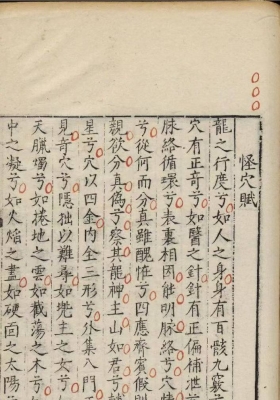 怪穴賦
龍之行度兮如人之身身有百骸九竅
穴有正奇兮如醫之針針有正偏補泄
脉絡循環兮表裏相因能明脉絡兮穴情
兮從何而分真雖醜恠兮四應齊賓假則
親欲分真偽兮察其龍神主山如君兮輔
星兮穴以四金內全三形兮外集八門
見奇穴兮隱拙以難尋如兜主之女兮
天臘燭兮如捲地之雲如截蕩之木兮
中之凝兮如火焰之盡如硬面之太陽